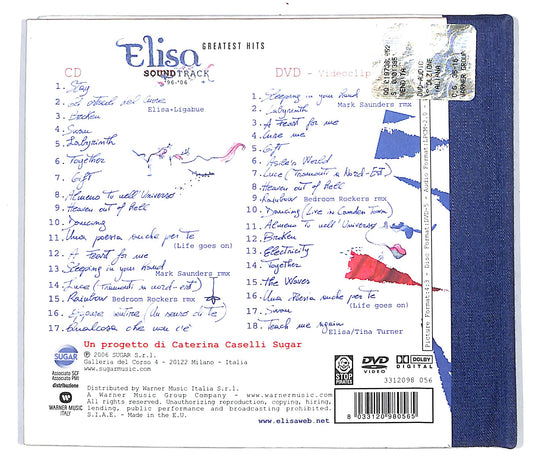 Elisa
GREATEST HITS
SOUNDTRACK
'96-'06
CD
1. Stay
2. Gli ostacoli del cuore
Elisa+Ligabue
3. Broken
4. Swan
5. Labyrinth
6. Together
7. Gift
8. Almeno tu nell'Universo
9. Heaven out of Hell
10. Dancing
11. Una poesia anche per te
(Life goes on)
12. A Feast for me
13. Sleeping in your hand
Mark Saunders rmx
14. Luce (Tramonti a nord-est)
15. Rainbow Bedroom Rockers rmx
16. Eppure sentire (Un senso di te)
17. Qualcosa che non c'è
DVD - Videoclip
1. Sleeping in your hand
Mark Saunders rmx
2. Labyrinth
3. A Feast for me
4. Cure me
5. Gift
6. Asile's World
7. Luce (Tramonti a Nord-Est)
8. Heaven out of Hell
9. Rainbow Bedroom Rockers rmx
10. Dancing (Live in Camden Town)
11. Almeno tu nell'Universo
12. Broken
13. Electricity
14. Together
15. The Waves
16. Una Poesia anche per te
(Life goes on)
17. Swan
18. Teach me again
Elisa/Tina Turner
Picture Format:4:3 - Disc Format:DVD-5 - Audio Format:LPCM-2.0
Un progetto di Caterina Caselli Sugar
SUGAR
Associato SCF
Associato PMI
distribuzione
WARNER MUSIC
ITALY
℗ © 2006 SUGAR S.r.l.
Galleria del Corso 4 - 20122 Milano - Italia
www.sugarmusic.com
Distributed by Warner Music Italia S.r.l.
A Warner Music Group Company - www.warnermusic.com
All rights reserved. Unauthorized reproduction, copying, hiring,
lending, public performance and broadcasting prohibited.
S.I.A.E. - Made in the E.U.
STOP
PIRATES
DVD
VIDEO
DOLBY
DIGITAL
3312098 056
8 033120 980565
www.elisaweb.net